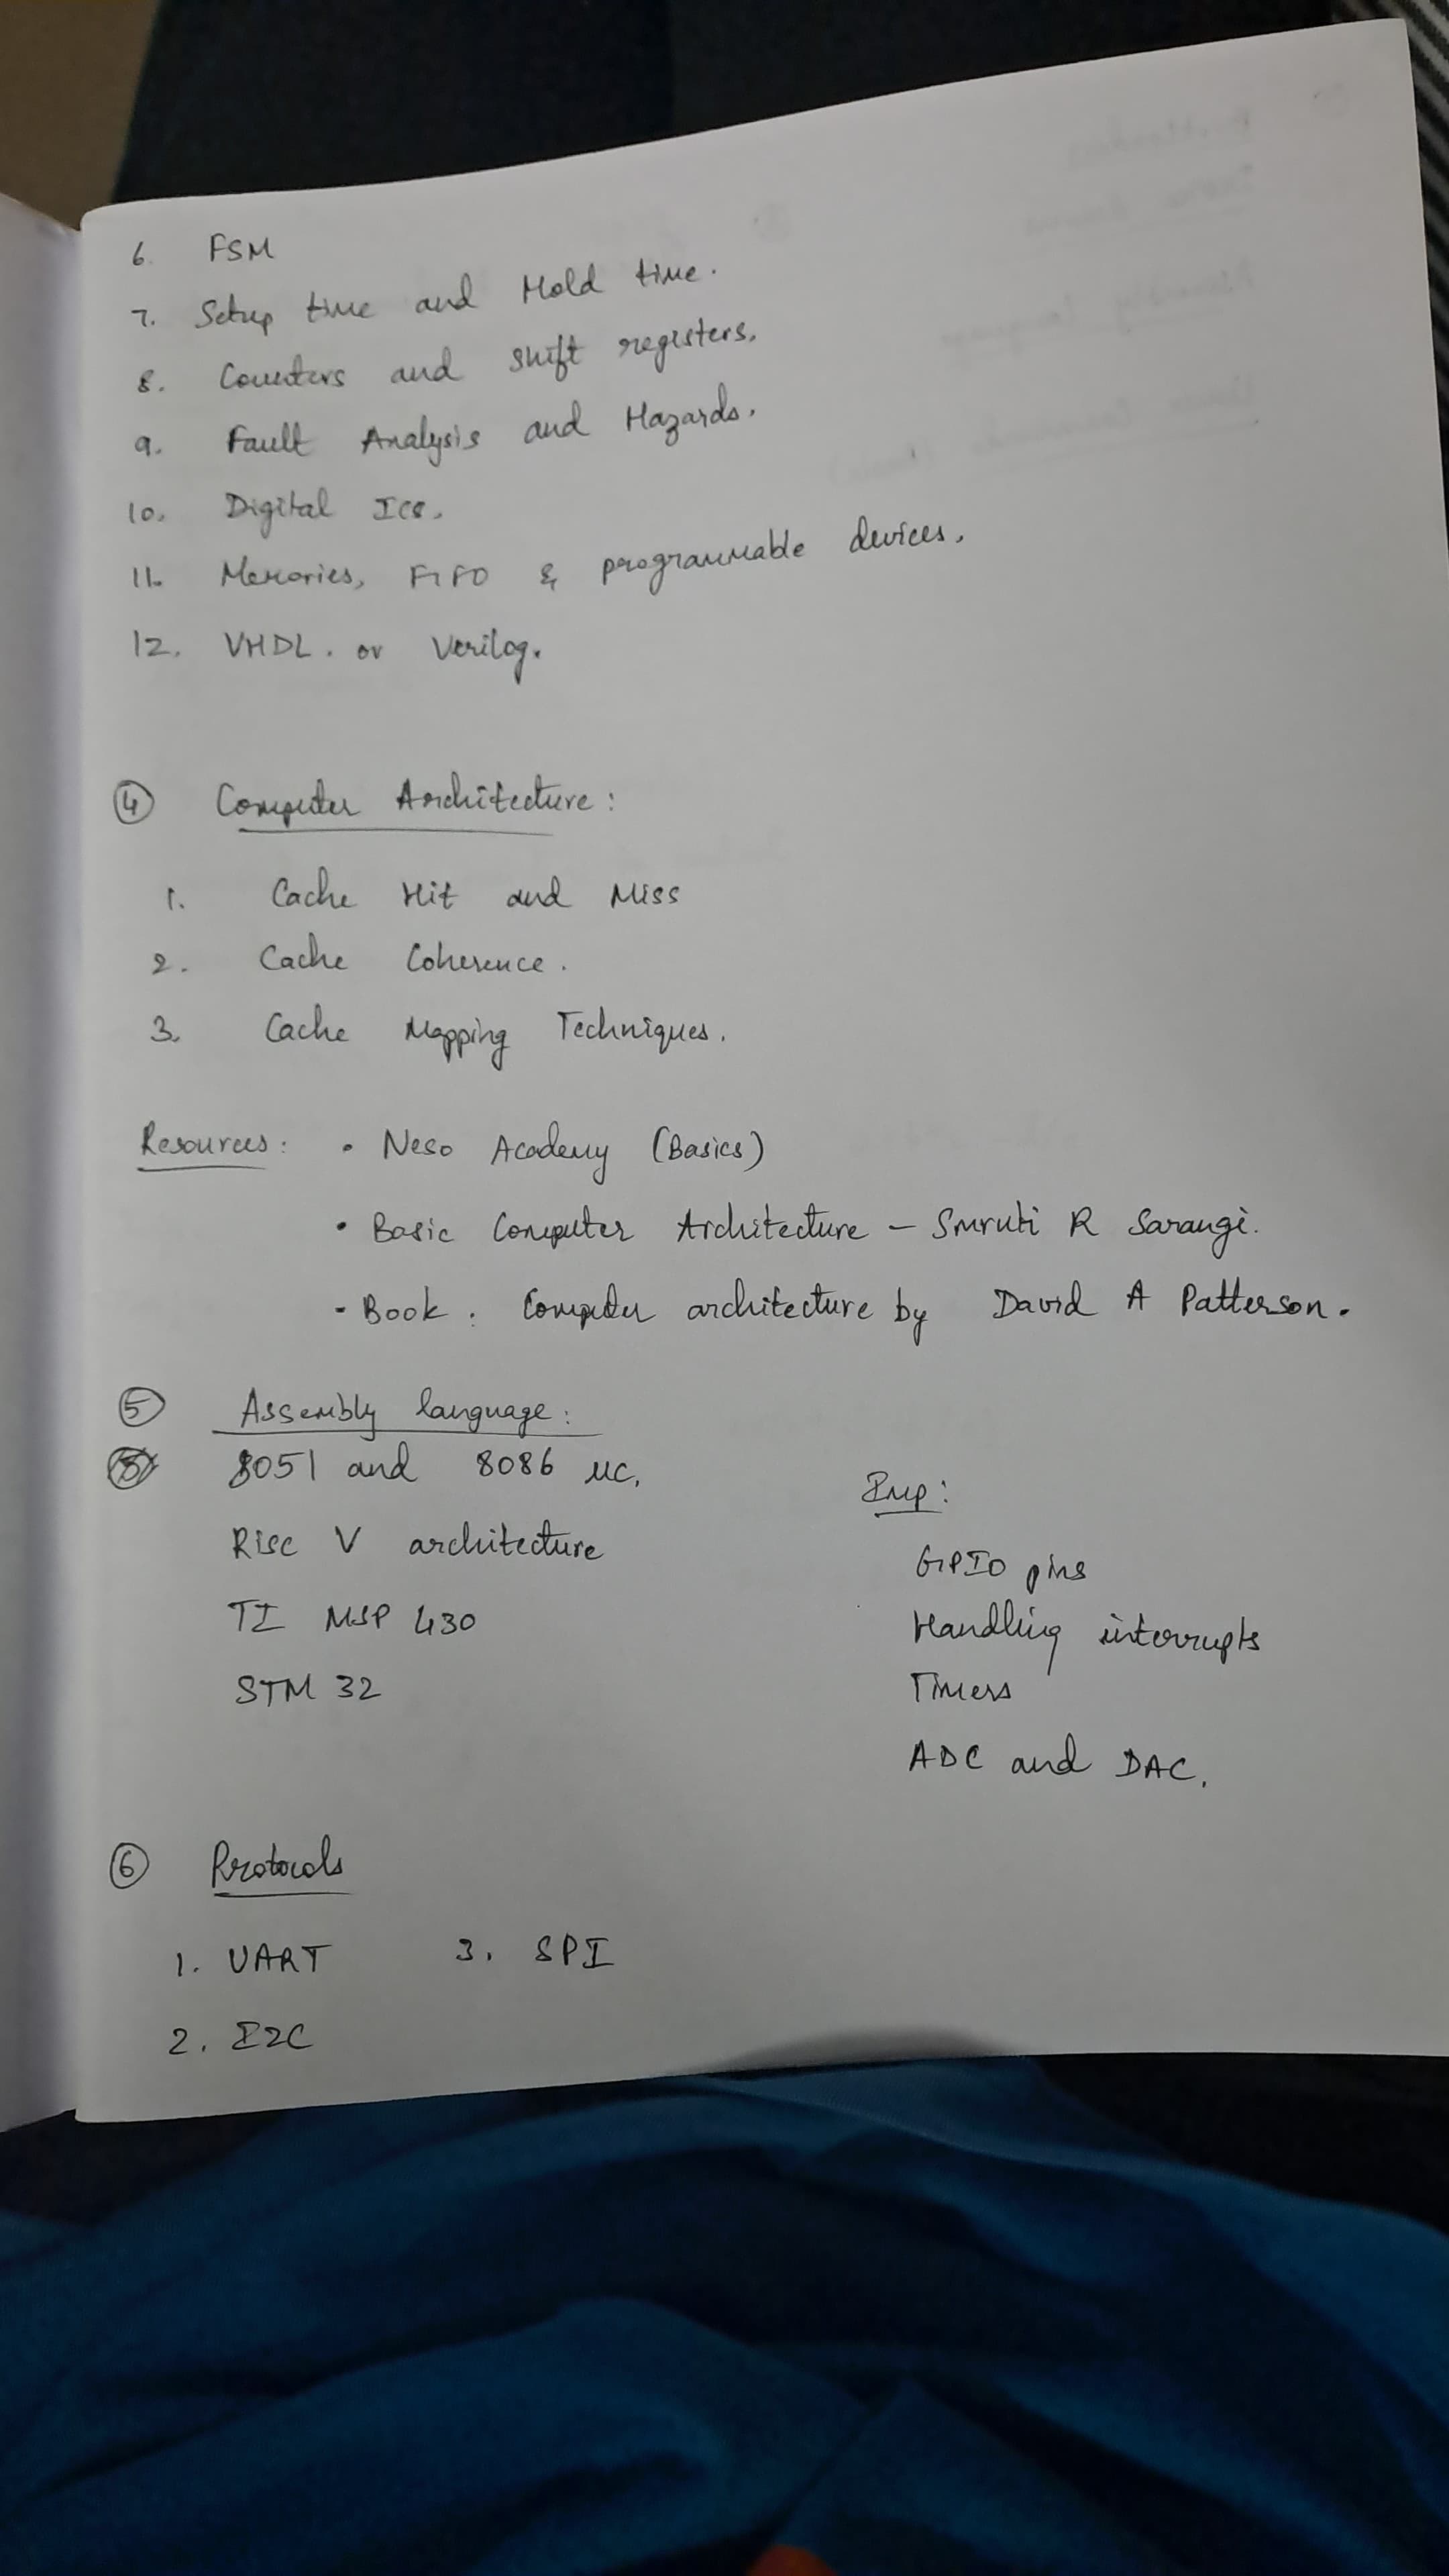 6. FSM
7. Setup time and Hold time.
8. Counters and shift registers.
9. Fault Analysis and Hazards.
10. Digital ICs.
11. Memories, FIFO & programmable devices.
12. VHDL. or Verilog.
④ Computer Architecture:
1. Cache Hit and Miss
2. Cache Coherence.
3. Cache Mapping Techniques.
Resources: • Neso Academy (Basics)
• Basic Computer Architecture – Smruti R Sarangi.
- Book: Computer architecture by David A Patterson.
⑤ Assembly language:
8051 and 8086 uc.
Risc V architecture
TI MSP 430
STM 32
Imp:
GPIO pins
Handling interrupts
Timers
ADC and DAC.
⑥ Protocols
1. UART 3. SPI
2. I2C